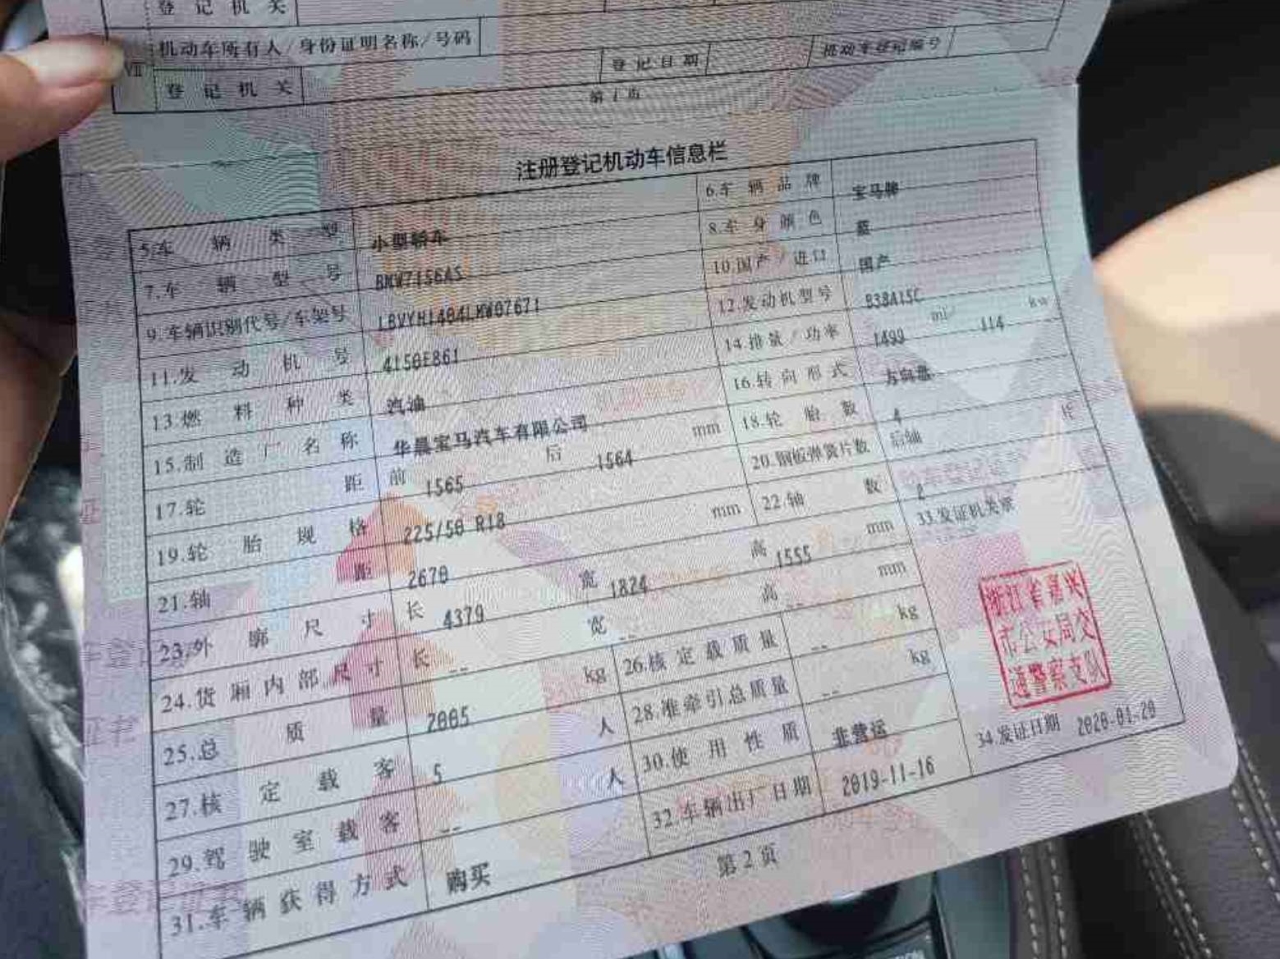 登记机关
Ⅶ 机动车所有人/身份证明名称/号码
登记机关 登记日期 机动车登记编号
第1页
注册登记机动车信息栏
5.车辆类型 小型轿车 6.车辆品牌 宝马牌
7.车辆型号 BMW7156AS 8.车身颜色 蓝
9.车辆识别代号/车架号 10.国产/进口 国产
11.发动机号 4150E861 12.发动机型号 B38A15C
13.燃料种类 汽油 14.排量/功率 1499 ml/ 114 kw
15.制造厂名称 华晨宝马汽车有限公司 16.转向形式 方向盘
17.轮距 前 1565 后 1564 mm 18.轮胎数 4
19.轮胎规格 225/50 R18 20.钢板弹簧片数 后轴 片
21.轴距 2670 mm 22.轴数 2
23.外廓尺寸 长 4379 宽 1824 高 1555 mm 33.发证机关章
24.货厢内部尺寸 长 -- 宽 -- 高 -- mm
25.总质量 2005 kg 26.核定载质量 -- kg
27.核定载客 5 人 28.准牵引总质量 -- kg
29.驾驶室载客 -- 人 30.使用性质 非营运
31.车辆获得方式 购买 32.车辆出厂日期 2019-11-16 34.发证日期 2020-01-20
浙江省嘉兴
市公安局交
通警察支队
第2页